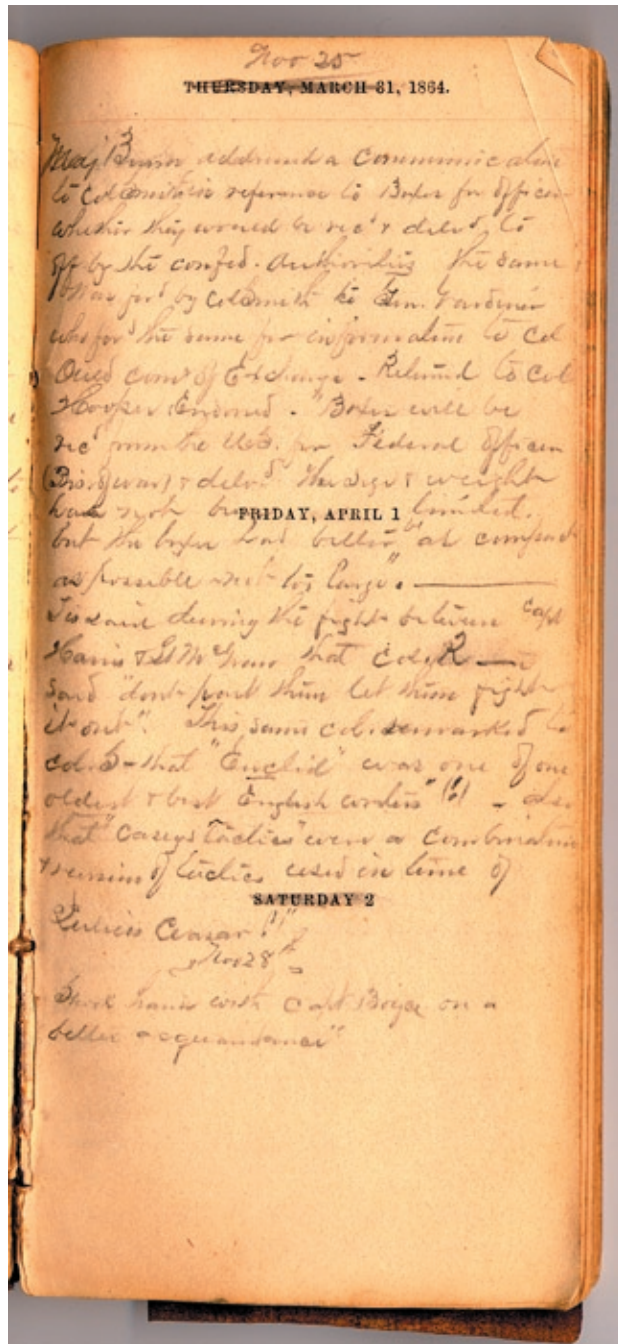 Nov 25
THURSDAY, MARCH 31, 1864.
Maj Byron addressed a Communication
to Col Smith in reference to Boxes for officers
whether they would be rec'd & deliv'd to
off by the confed. authorities the same
was for'd by Col Smith to Gen. Gardner
who for'd the same for information to Col
Ould com'r of Exchange. Returned to Col
Hooper Endorsed. "Boxes will be
rec'd from the U.S. for Federal officers
(Pris of war) & deliv'd. The size & weight
have not been limited.
FRIDAY, APRIL 1
but the boxes had better "as compact
as possible & not too large".
Tis said during the fight between Capt
Harris & Lt McGraw that Col R—
said "dont part them let them fight
it out". This same col. remarked to
Col. S— that "Euclid" was one of our
oldest & best English writers" (!) — also
that "Caseys Tactics" were a combination
& revision of tactics used in time of
SATURDAY 2
Julius Ceasar (!)"
Nov 28th
Shook hands with Capt Boyce on a
better acquaintance"